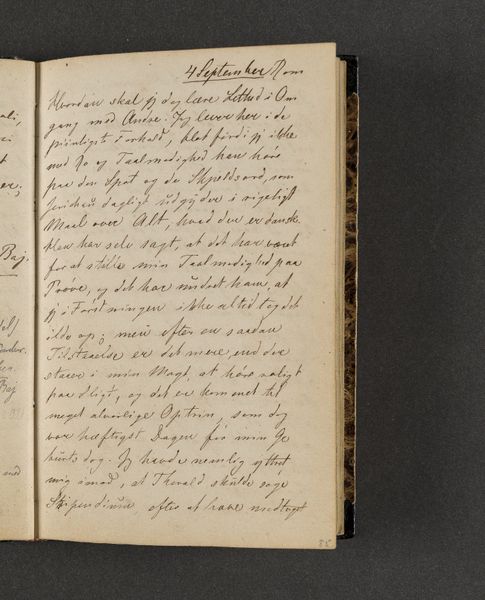 4 September Rom
Hvordan skal jeg dog lære Lethed i Om
gang med Andre. Jeg lever her i de
piinligste Forhold, blot fordi jeg ikke
med Ro og Taalmodighed kan høre
paa den Spot og de Skjeldsord, som
Jerichau dagligt udgyder i rigeligt
Maal over Alt, hvad der er dansk.
Han har selv sagt, at det har været
for at stille min Taalmodighed paa
Prøve, og det har undret ham, at
jeg i Førstningen ikke altid tog det
ilde op; men efter en saadan
Tilstaaelse er det mere, end der
staaer i min Magt, at høre roligt
paa Sligt, og det er kommet til
meget alvorlige Optrin, som dog
var hæftigst Dagen før min Ge
burtsdag. Jeg havde nemlig yttret
mig imod, at Thorald skulde søge
Stipendium, efter at have modtaget
85
Baj.
med